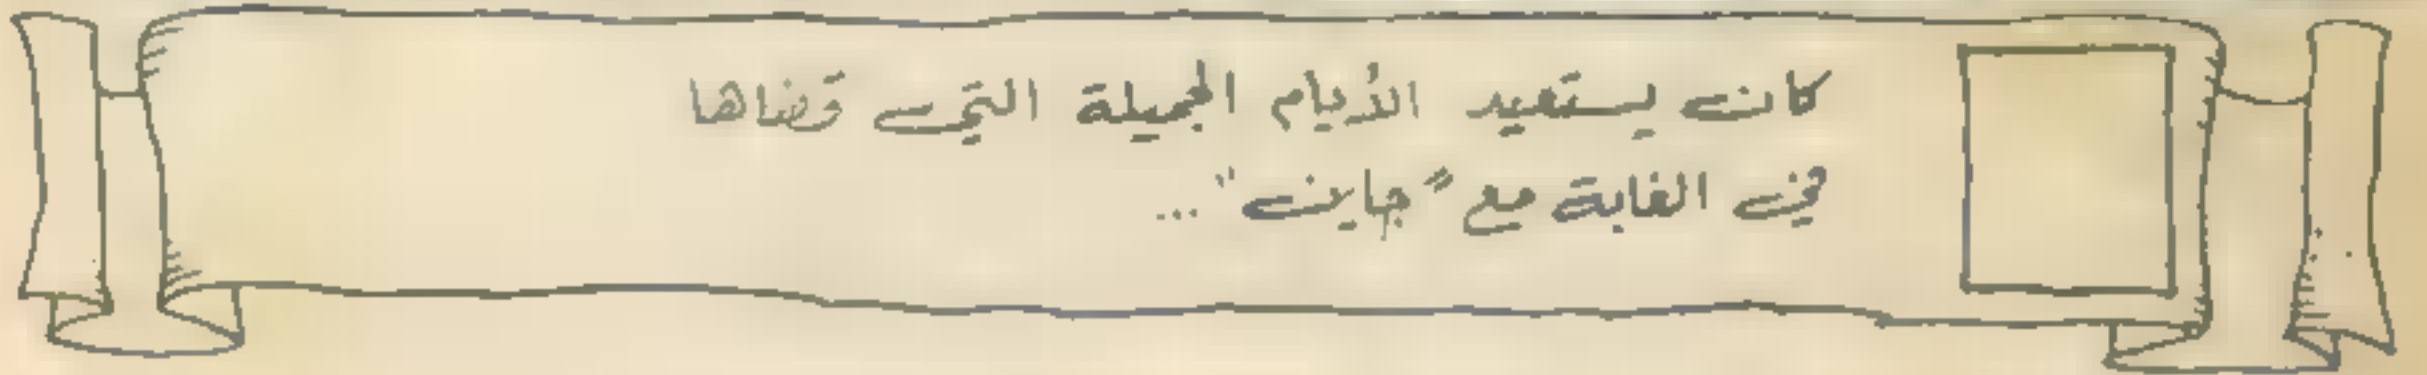 كان يستعيد الأيام الجميلة التي قضاها
في الغابة مع "جاين"...